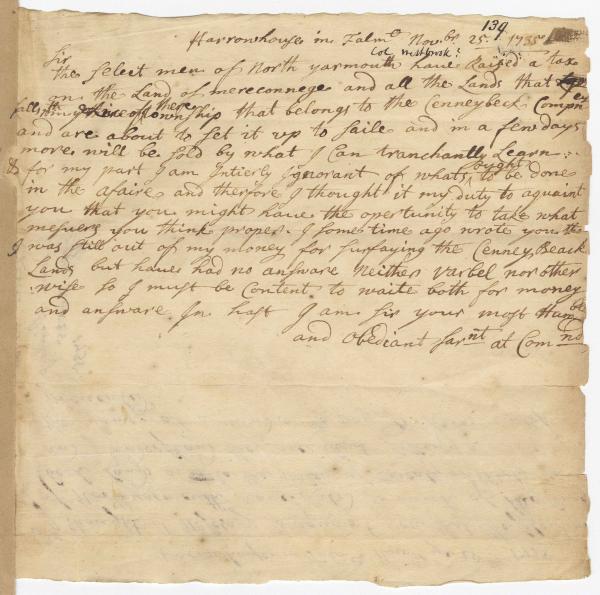 139
Harrowhouse in Falmo Novbr 25 1735
Col. Westbrook:
Sir
the select men of North yarmouth have Raised a tax
on the Land of mereconnege and all the Lands that
falls in there township that belongs to the Cenneybeck Compny
and are about to set it up to saile and in a few days
more will be sold by what I Can tranchantly Learn
& for my part I am Intierly Ignorant of whats ought to be done
in the afaire and therfore I thought it my duty to aquaint
you that you might have the opertunity to take what
mesuers you think proper. I some time ago wrote you tht
I was still out of my money for survaying the Cenney Beack
Lands but have had no answare Neither Varbel nor other
wise so I must be Content to waite both for money
and answare In hast I am Sir your most Humbl
and obediant Sarnt at Comnd